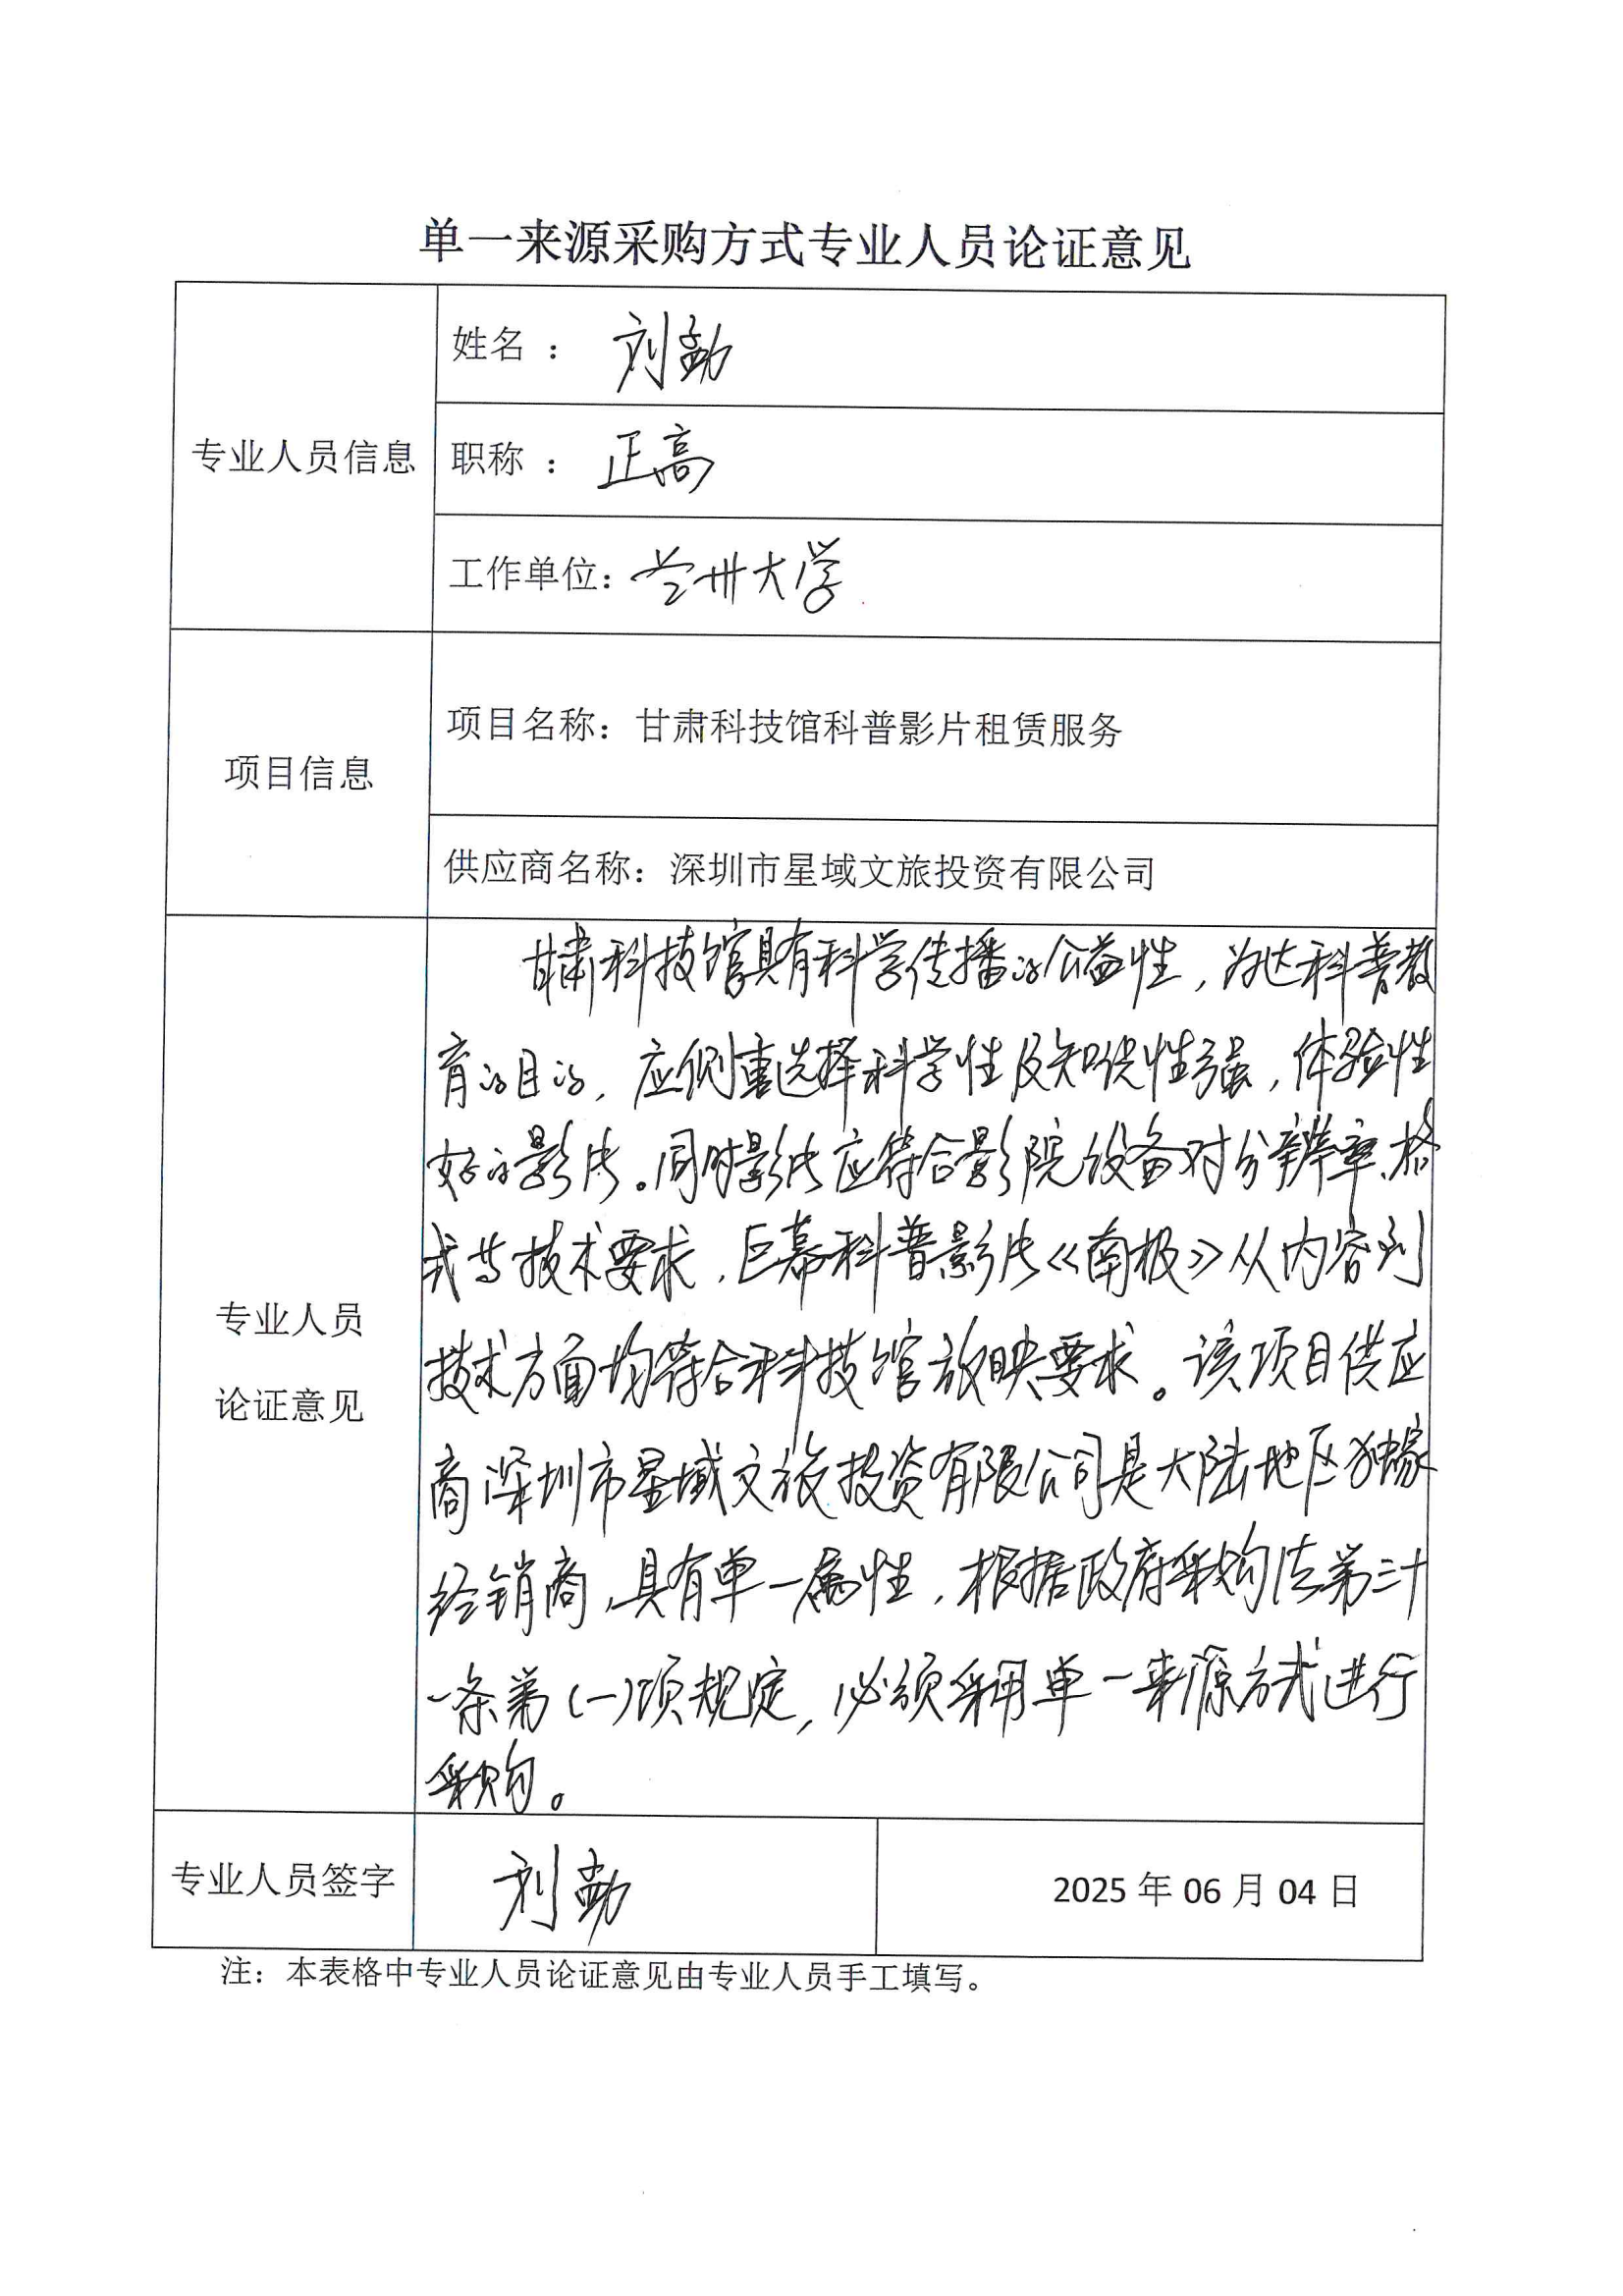 单一来源采购方式专业人员论证意见
专业人员信息
姓名 ： 刘勤
职称 ： 正高
工作单位： 兰州大学
项目信息
项目名称：甘肃科技馆科普影片租赁服务
供应商名称：深圳市星域文旅投资有限公司
专业人员
论证意见
甘肃科技馆具有科学传播的公益性，为达科普教
育的目的，应侧重选择科学性及知识性强，体验性
好的影片。同时影片应符合影院设备对分辨率、格
式等技术要求，巨幕科普影片《南极》从内容到
技术方面均符合科技馆放映要求。该项目供应
商深圳市星域文旅投资有限公司是大陆地区独家
经销商，具有单一属性，根据政府采购法第三十
一条第(一)项规定，必须采用单一来源方式进行
采购。
专业人员签字
刘勤
2025 年 06 月 04 日
注：本表格中专业人员论证意见由专业人员手工填写。